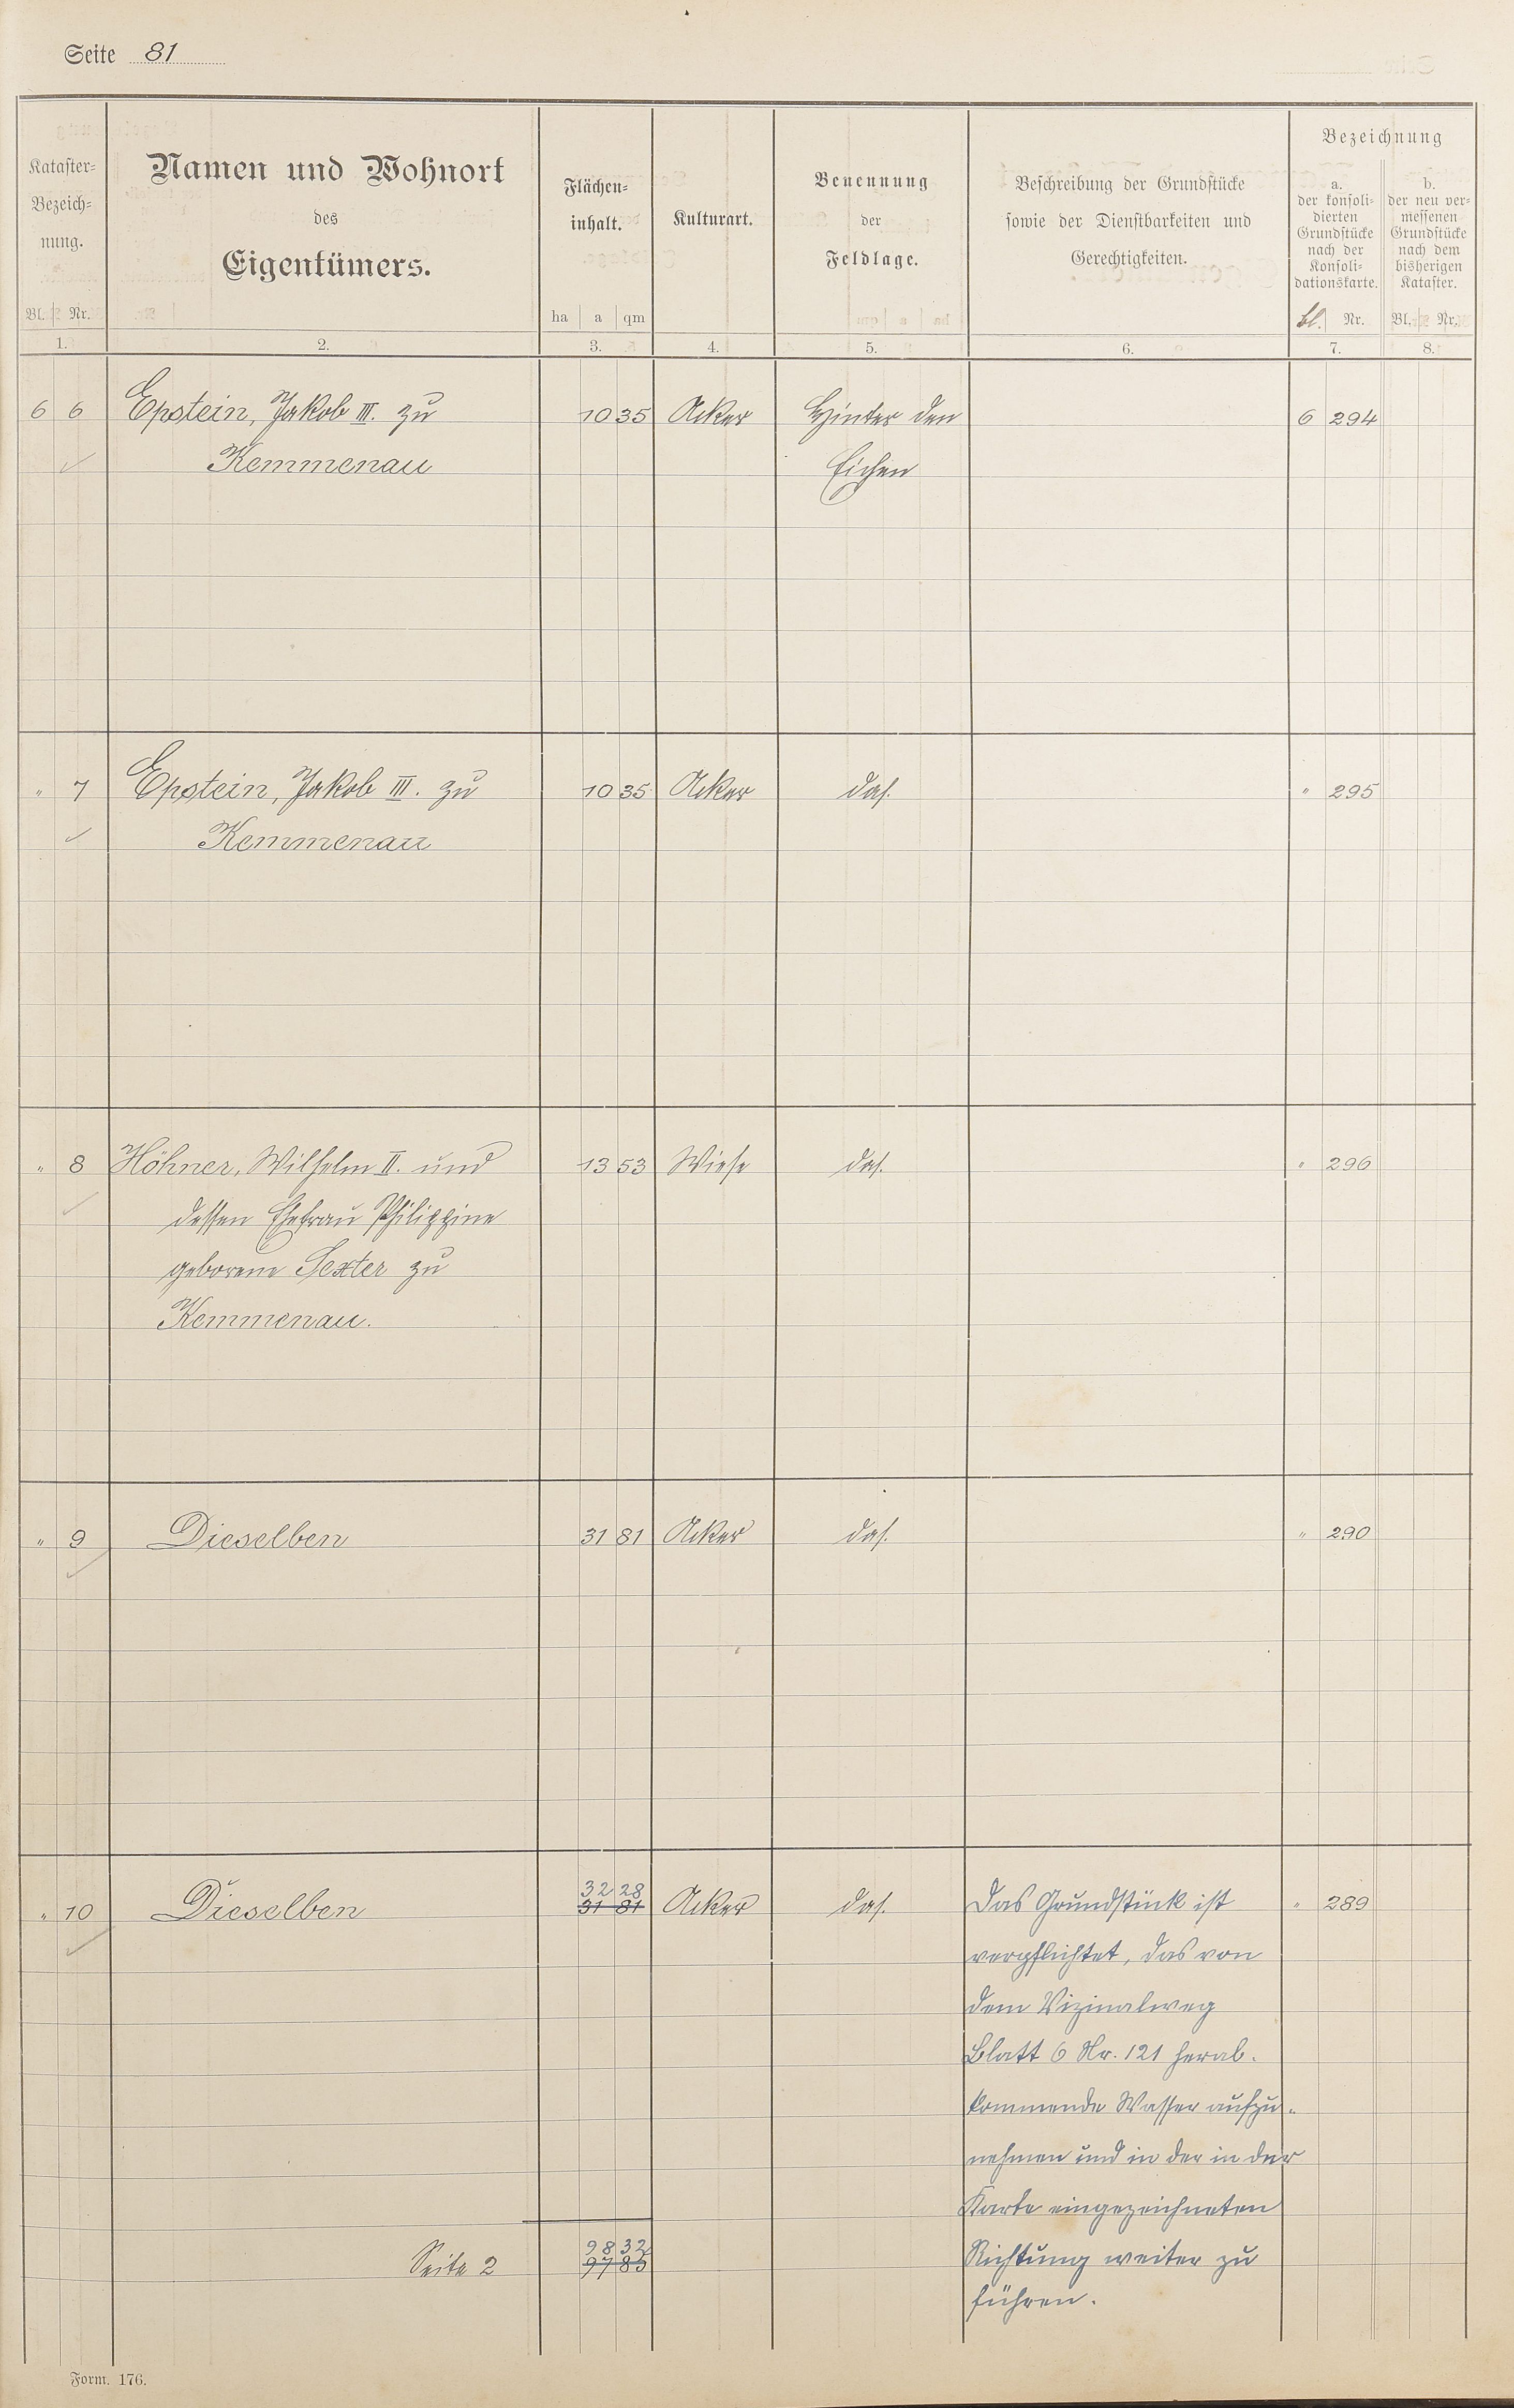 Seite 81
Kataster-
Bezeich-
nung.
Bl. Nr.
1.
Namen und Wohnort
des
Eigentümers.
2.
Flächen-
inhalt.
ha a qm
3.
Kulturart.
4.
Benennung
der
Feldlage.
5.
Beschreibung der Grundstücke
sowie der Dienstbarkeiten und
Gerechtigkeiten.
6.
Bezeichnung
a.
der konsoli-
dierten
Grundstücke
nach der
Konsoli-
dationskarte.
Bl. Nr.
7.
b.
der neu ver-
messenen
Grundstücke
nach dem
bisherigen
Kataster.
Bl. Nr.
8.
6 6 Epstein, Jakob III. zu 10 35 Acker Hinter den 6 294
Kemmenau Eichen
" 7 Epstein, Jakob III. zu 10 35 Acker das. " 295
Kemmenau
" 8 Höhner, Wilhelm II. und 13 53 Wiese das. " 296
dessen Ehefrau Philippine
geborene Sexter zu
Kemmenau.
" 9 Dieselben 31 81 Acker das. " 290
32 28
" 10 Dieselben 31 81 Acker das. Das Grundstück ist " 289
verpflichtet, das von
dem Vizinalweg
Blatt 6 Nr. 121 herab-
kommende Wasser aufzu-
nehmen und in der in der
Karte eingezeichneten
98 32
Seite 2 97 85 Richtung weiter zu
führen.
Form. 176.